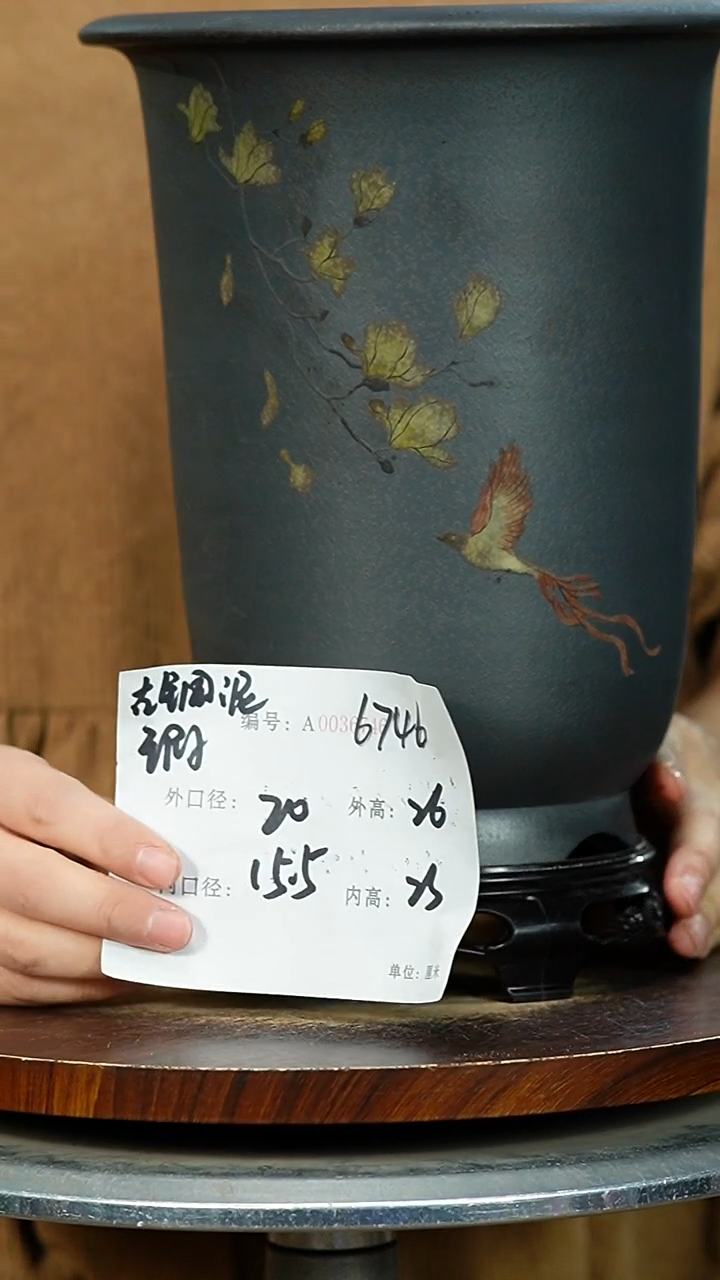 古铜泥 6746
编号: A0036546
外口径: 20 外高: 26
内口径: 15.5 内高: 25
单位: 厘米